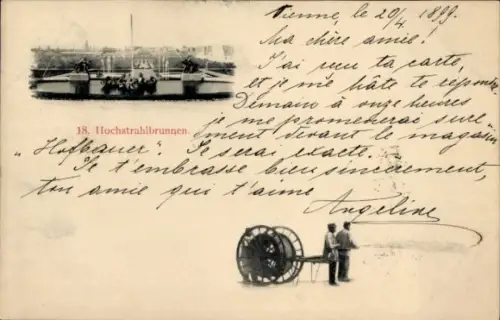 Vienne, le 20/4. 1899.
Ma chère amie!
J'ai reçu ta carte,
et je me hâte te répondre.
Demain à onze heures
je me promenerai sure-
18. Hochstrahlbrunnen.
ment devant le magasin
"Hofbauer". Je serai exacte.
Je t'embrasse bien sincèrement,
ton amie qui t'aime
Angeline